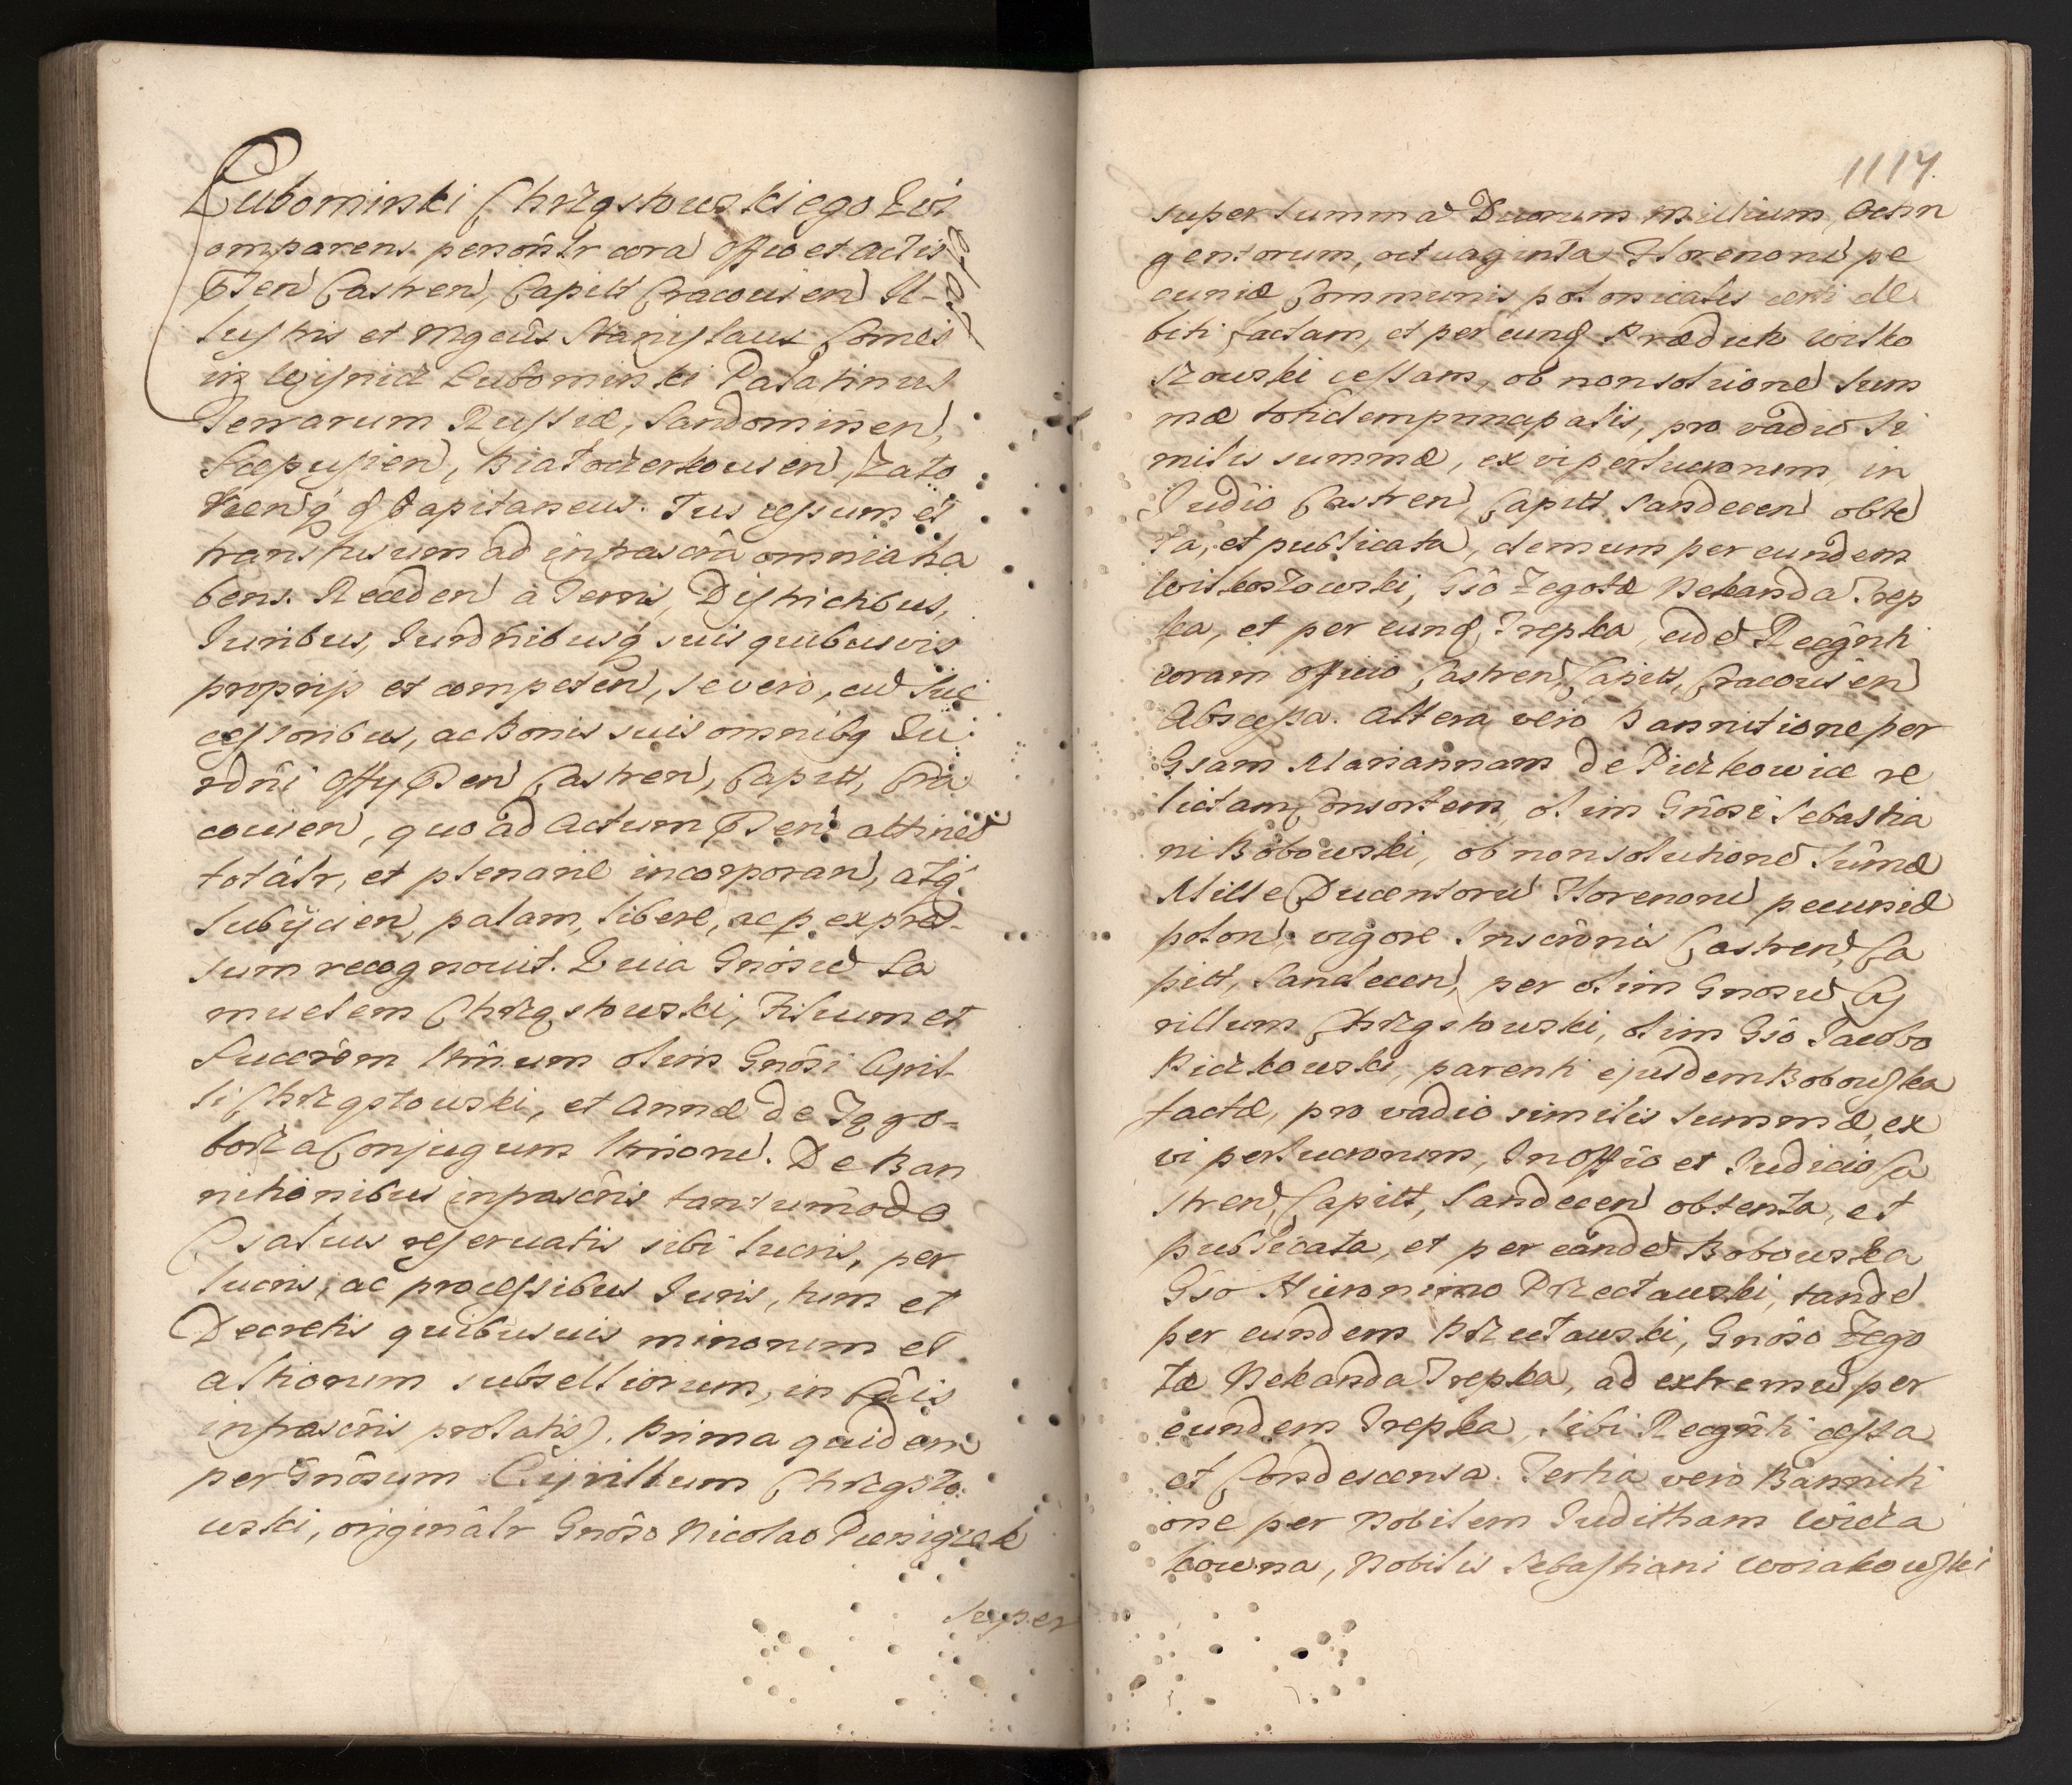 Lubominski Chrząstowskiego Lvi
omparens personłr cora Offio et Actis
Pten Castren, Capitt Cracovien Il-
lustris et Mgcus Stanislaus Comes
in Wisnicz Lubominski Palatinus
Terrarum Russiæ, Sandomirien,
Scepusien, Białocerkovien, Zato
rienq & Capitaneus. Jus cessum et
transfusum ad infrascra omnia ha
bens. Receden a Terris, Districtibus,
Juribus, Jurdnibusq suis quibusvis
proprijs et competen, se vero, cu Suc
cessoribus, ac Bonis suis omnibq Ju
rdni Offy Pten Castren, Capitt, Cra
covien, quo ad Actum Pten attinet
totałr, et plenarie incorporan, atq
subijcien, palam, libere, ac p expres-
sum recognovit. Quia Gnosu Sa
muelem Chrząstowski, Filium et
Succrem Unicum olim Gnosi Cyril-
li Chrząstowski, et Annæ de Jego-
Conjugum De Ban
nitionibus infrascris tantumodo
(salvis reservatis sibi lucris, per
lucris, ac processibus Juris, tum et
Decretis quibusvis minorum et
altiorum subselliorum, in Cais
infrascris prolatis). Prima quidem
per Gnosum Cyrillum Chrząsto
wski, originałr Gnoso Nicolao Pieniązek
super
1117.
super summa Duorum millium, Octin
gentorum, octuaginta Florenoru pe
cuniæ Communis polonicalis veri de
biti factam, et per eund Prædict Witko
szowski cessam, ob non solutione Sum
mæ totidem principalis, pro vadio si
milis summæ, ex vi perlucrorum, in
Judio Castren, Capitt Sandecen obte
ta, et publicata, demum per eundem
Witkoszowski, Gso Zegotæ Nekanda Trep
ka, et per eund Trepka, eide Recgnti
coram Officio Castren, Capitt, Cracovien
Abscessa. Altera vero Bannitione per
Gsam Mariannam de Piczkowice re
lictam Consortem, olim Gnosi Sebastia
ni Bobowski, ob non solutione Sumæ
Mille Ducentoru Florenoru pecuniæ
polon, vigore Inscronis Castren, Ca
pitt, Sandecen, per olim Gnosu Cy
rillum Chrząstowski, olim Gso Jacobo
Piczkowski, parenti ejusdem Bobowska
factæ, pro vadio similis summæ, ex
vi perlucrorum, In Offio et Judicio Ca
stren, Capitt, Sandecen obtenta, et
publicata, et per eande Bobowska
Gso Hieronimo Przectawski, tande
per eundem Przectawski, Gnoso Zego
tæ Nekanda Trepka, ad extremu per
eundem Trepka, sibi Recgnti cessa
et Condescensa. Tertia vero Banniti
one per Nobilem Juditham Wicza
kowna, Nobilis Sebastiani Woiakowski